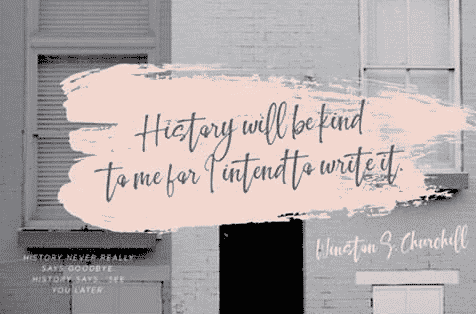 History will be kind
to me for I intend to write it.
Winston S. Churchill
HISTORY NEVER REALLY
SAYS GOODBYE.
HISTORY SAYS, SEE
YOU LATER.